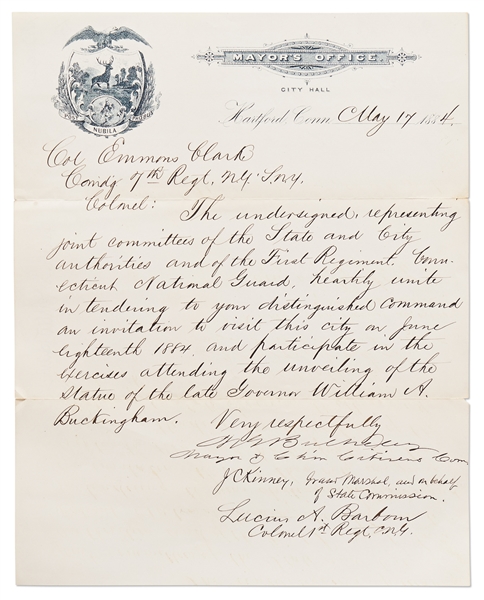 POST NUBILA PHOEBUS
MAYOR'S OFFICE.
CITY HALL
Hartford Conn May 17 1884.
Col Emmons Clark
Comdg 7th Regt, N.Y. S.N.Y.
Colonel: The undersigned, representing
joint committees of the State and City
authorities and of the First Regiment, Conn-
ecticut National Guard, heartily unite
in tendering to your distinguished command
an invitation to visit this city on June
Eighteenth 1884 and participate in the
exercises attending the unveiling of the
Statue of the late Governor William A.
Buckingham.
Very respectfully
Bulkeley
Mayor & Chm Citizens Com
J C Kinney, Grand Marshal, and on behalf
of State Commission.
Lucius A. Barbour
Colonel 1st Regt, C.N.G.